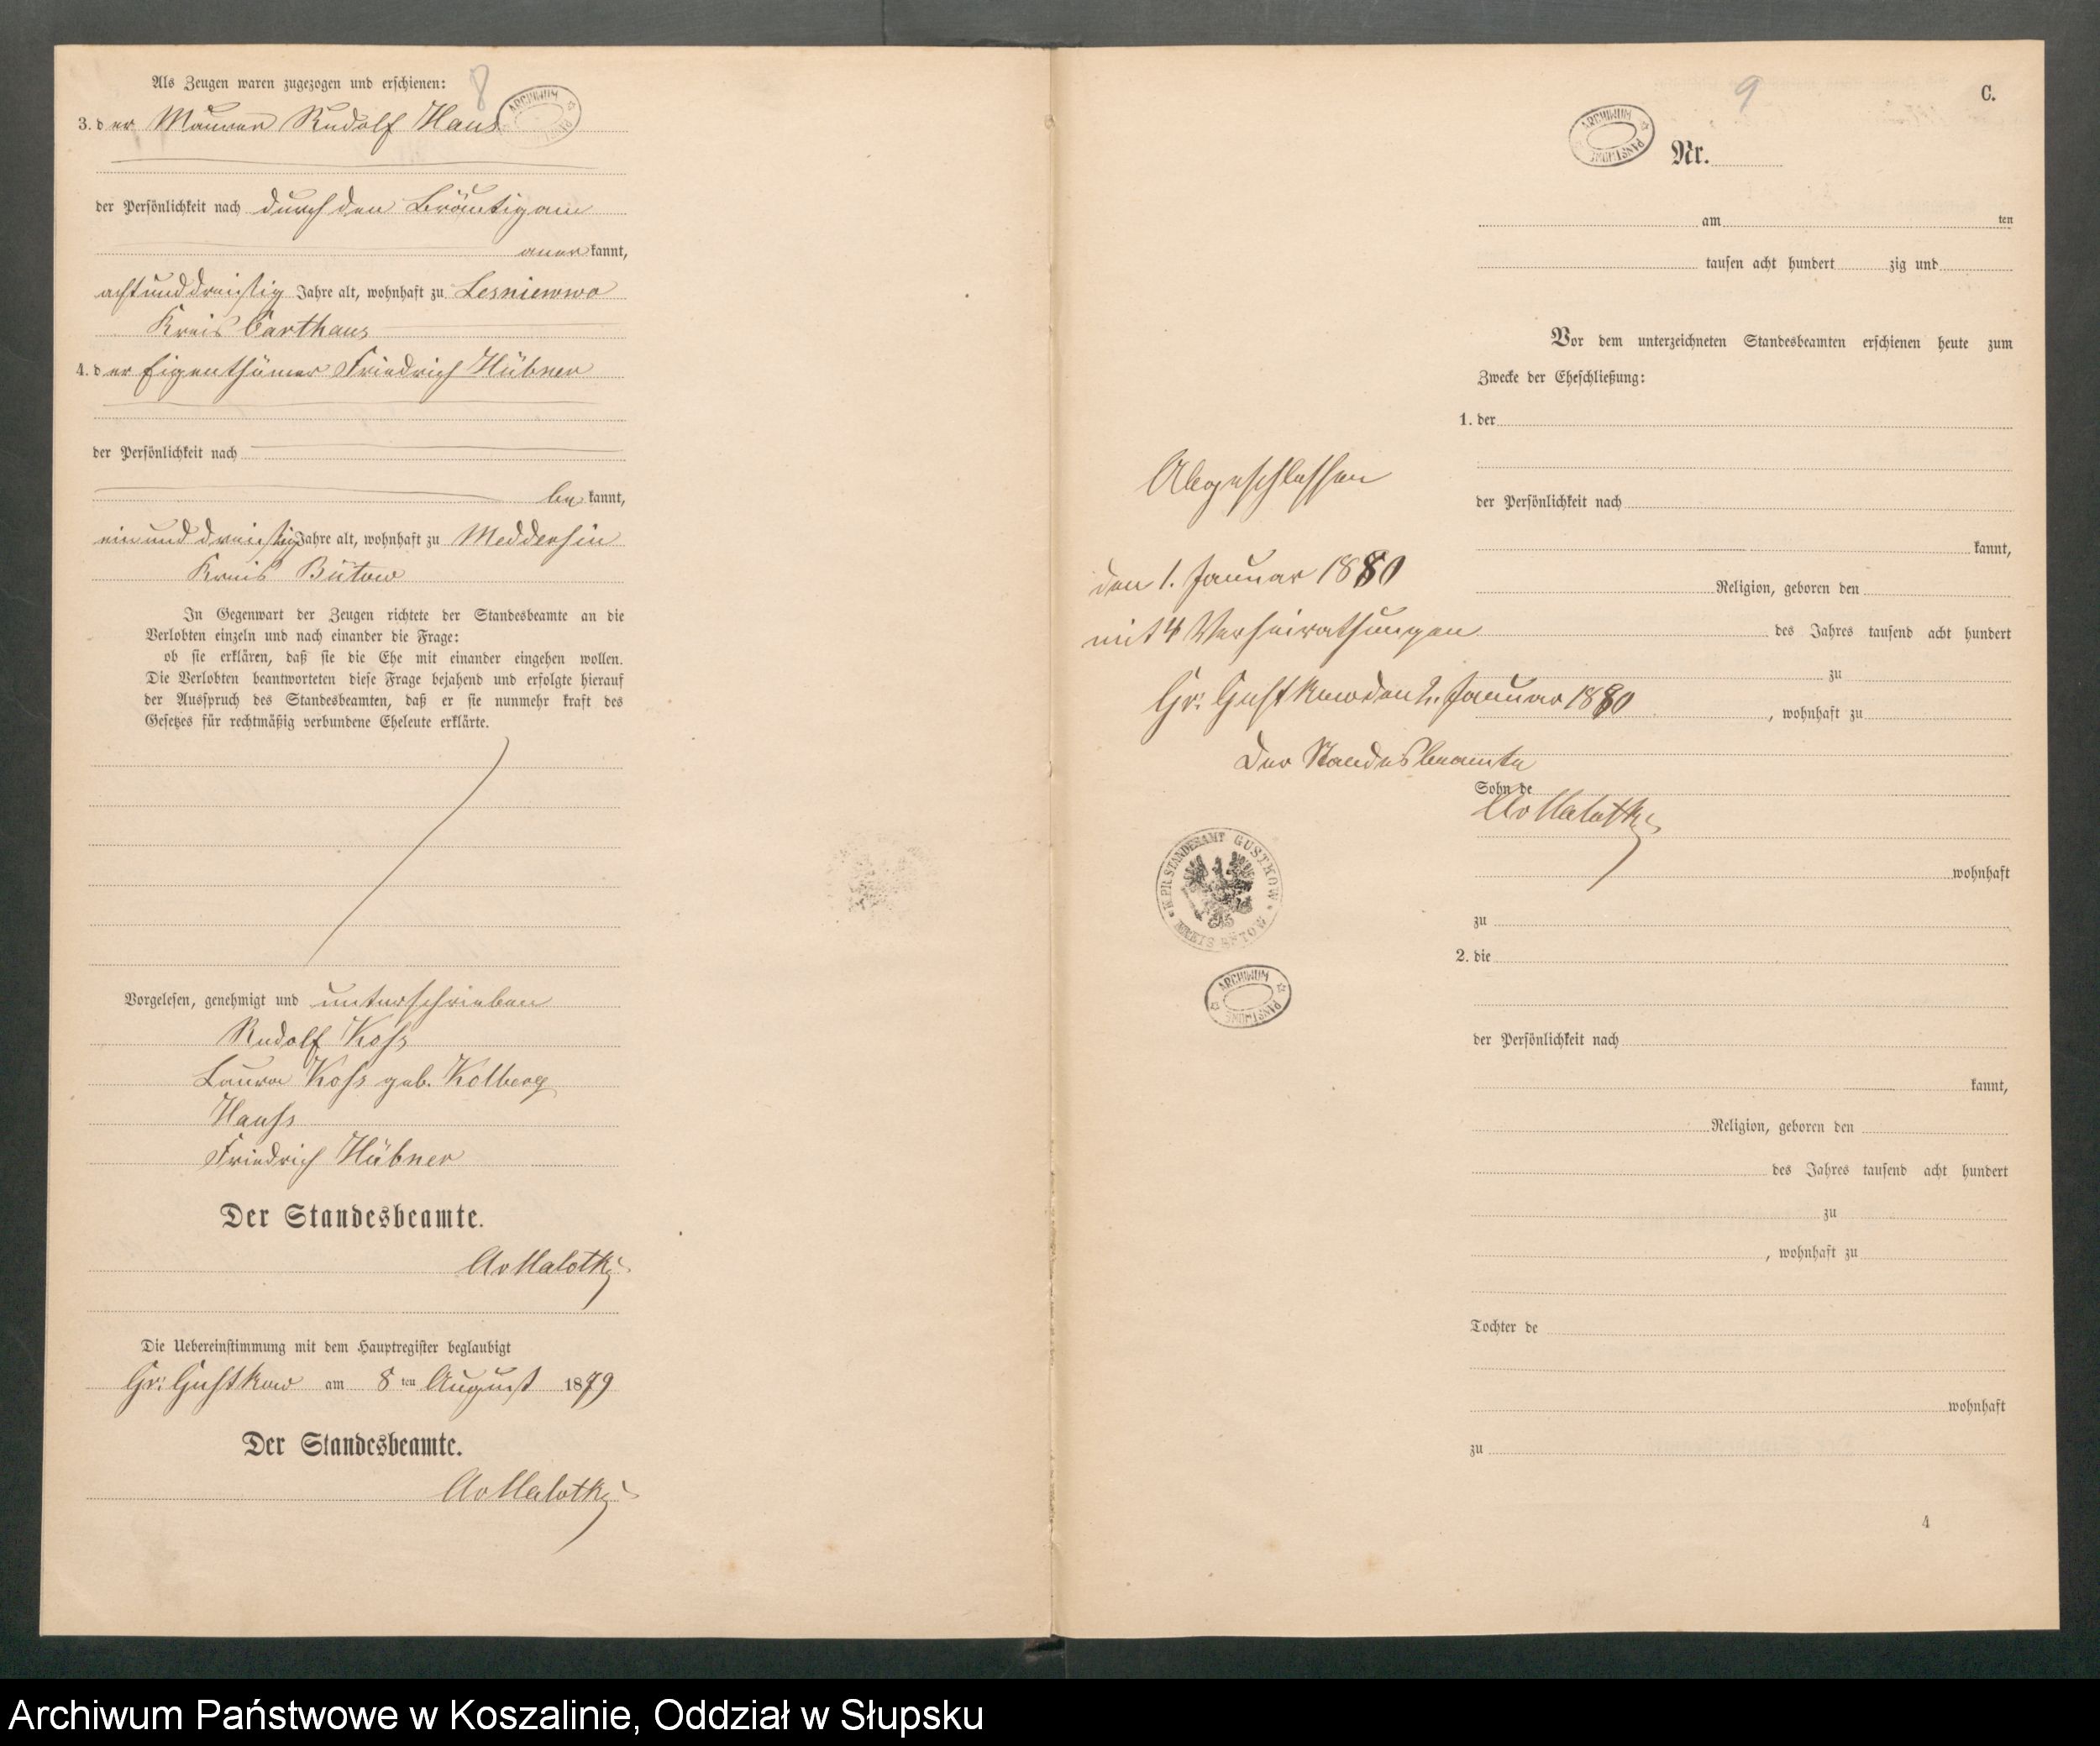 8
Als Zeugen waren zugezogen und erschienen:
3. der Maurer Rudolf Hauß
der Persönlichkeit nach durch den Bräutigam
anerkannt,
achtunddreißig Jahre alt, wohnhaft zu Lesniewwo
Kreis Carthaus
4. der Eigenthümer Friedrich Hübner
der Persönlichkeit nach
bekannt,
einunddreißig Jahre alt, wohnhaft zu Meddersin
Kreis Bütow
In Gegenwart der Zeugen richtete der Standesbeamte an die
Verlobten einzeln und nach einander die Frage:
ob sie erklären, daß sie die Ehe mit einander eingehen wollen.
Die Verlobten beantworteten diese Frage bejahend und erfolgte hierauf
der Ausspruch des Standesbeamten, daß er sie nunmehr kraft des
Gesetzes für rechtmäßig verbundene Eheleute erklärte.
Vorgelesen, genehmigt und unterschrieben
Rudolf Koß
Laura Koß geb. Kolberg
Hauß
Friedrich Hübner
Der Standesbeamte.
AvMalotky
Die Uebereinstimmung mit dem Hauptregister beglaubigt
Gr: Gustkow am 8ten August 1879
Der Standesbeamte.
AvMalotky
ARCHIWUM PAŃSTWOWE
9
C.
Nr.
am ten
tausen acht hundert zig und
Vor dem unterzeichneten Standesbeamten erschienen heute zum
Zwecke der Eheschließung:
1. der
der Persönlichkeit nach
kannt,
Religion, geboren den
des Jahres tausend acht hundert
zu
, wohnhaft zu
Sohn de
wohnhaft
zu
2. die
der Persönlichkeit nach
kannt,
Religion, geboren den
des Jahres tausend acht hundert
zu
, wohnhaft zu
Tochter de
wohnhaft
zu
4
Abgeschlossen
den 1. Januar 1880
mit 4 Verheirathungen
Gr: Gustkow den 2. Januar 1880
Der Standesbeamte
AvMalotky
K. PR. STANDESAMT GUSTKOW * KREIS BÜTOW *
ARCHIWUM PAŃSTWOWE
Archiwum Państwowe w Koszalinie, Oddział w Słupsku